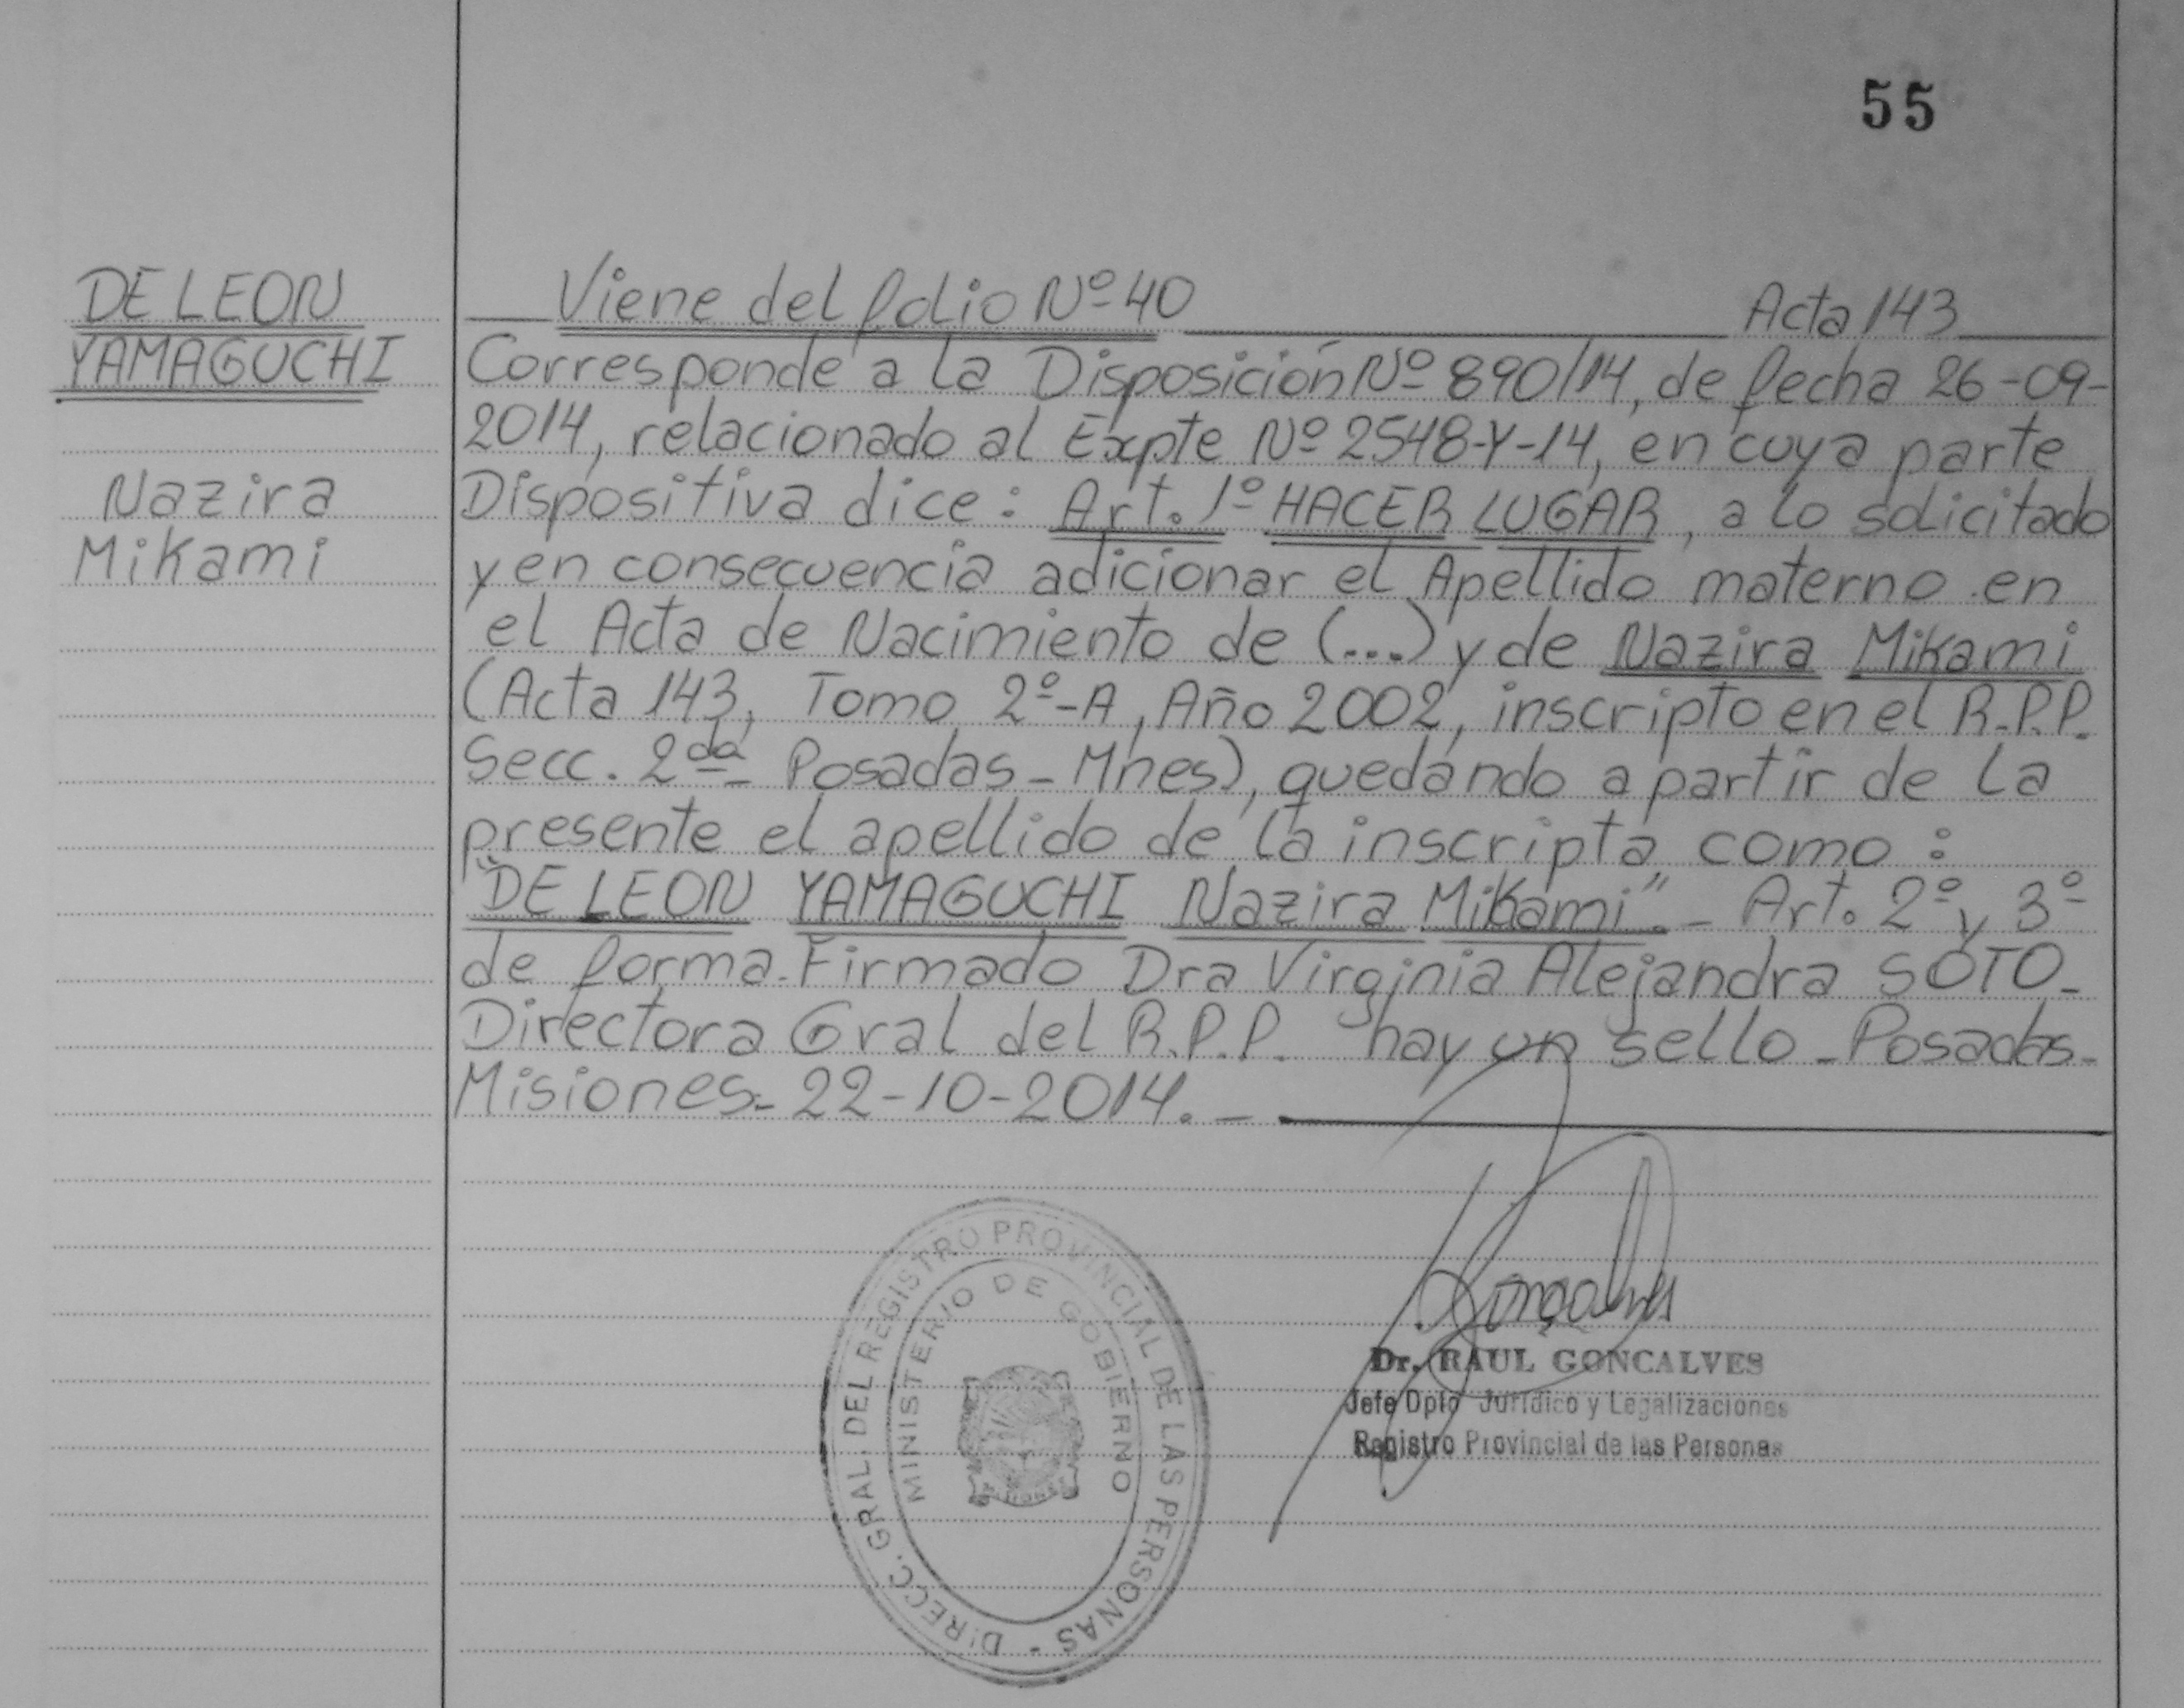 55
DE LEON
YAMAGUCHI
Nazira
Mikami
Viene del folio Nº 40 Acta 143
Corresponde a la Disposición Nº 890/14, de fecha 26-09-
2014, relacionado al Expte Nº 2548-Y-14, en cuya parte
Dispositiva dice: Art. 1º HACER LUGAR, a lo solicitado
y en consecuencia adicionar el Apellido materno en
el Acta de Nacimiento de (...) y de Nazira Mikami
(Acta 143, Tomo 2º-A, Año 2002, inscripto en el R.P.P.
Secc. 2da Posadas - Mnes), quedando a partir de la
presente el apellido de la inscripta como:
"DE LEON YAMAGUCHI Nazira Mikami". - Art. 2º y 3º
de forma. Firmado Dra Virginia Alejandra SOTO -
Directora Gral del R.P.P. hay un sello - Posadas -
Misiones - 22-10-2014. -
DIRECC. GRAL. DEL REGISTRO PROVINCIAL DE LAS PERSONAS -
MINISTERIO DE GOBIERNO
Gonçalves
Dr. RAUL GONCALVES
Jefe Dpto Jurídico y Legalizaciones
Registro Provincial de las Personas